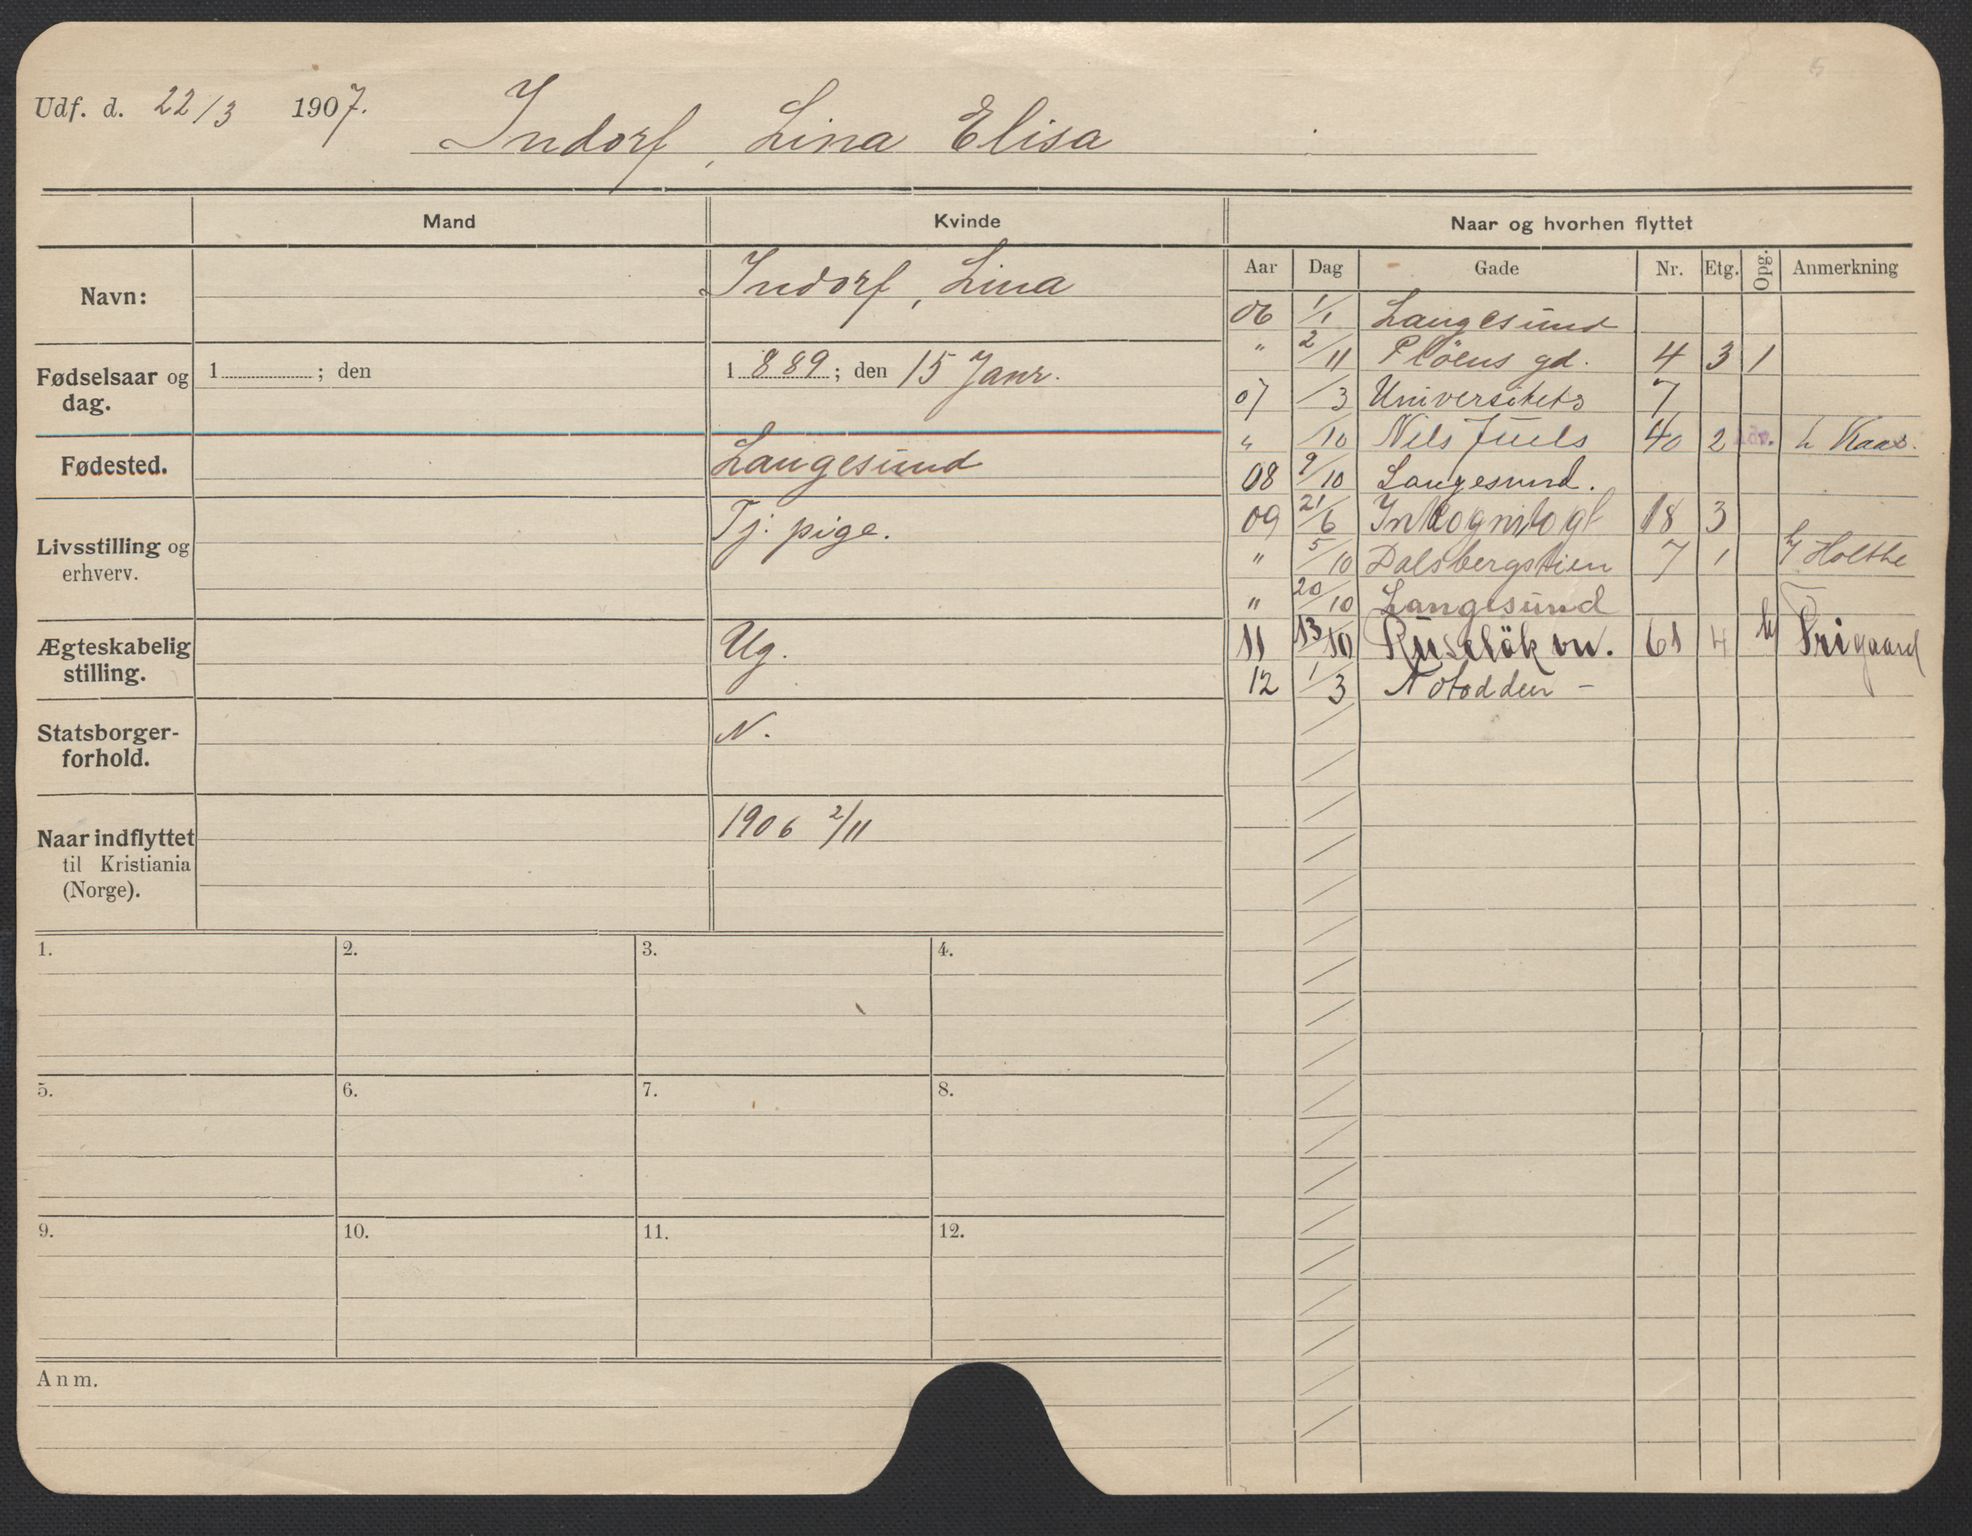 Udf. d. 22/3 1907.
Indorf, Lina Elisa
Mand
Kvinde
Naar og hvorhen flyttet
Navn:
Indorf, Lina
Fødselsaar og dag.
1 ; den
1 889 ; den 15 Janr.
Fødested.
Langesund
Livsstilling og erhverv.
Tj. pige.
Ægteskabelig stilling.
Ug.
Statsborgerforhold.
N.
Naar indflyttet til Kristiania (Norge).
1906 2/11
Aar Dag Gade Nr. Etg. Opg. Anmerkning
06 1/1 Langesund
" 2/11 Plöens gd. 4 3 1
07 /3 Universitets 7
" /10 Nils Juels 40 2 Adv. h Kaas.
08 9/10 Langesund.
09 21/6 Inkognitogt 18 3
" 5/10 Dalsbergstien 7 1 h/ Holthe
" 20/10 Langesund
11 13/10 Ruselök vn. 61 4 h/ Frigaard
12 1/3 Notodden –
1. 2. 3. 4.
5. 6. 7. 8.
9. 10. 11. 12.
Anm.